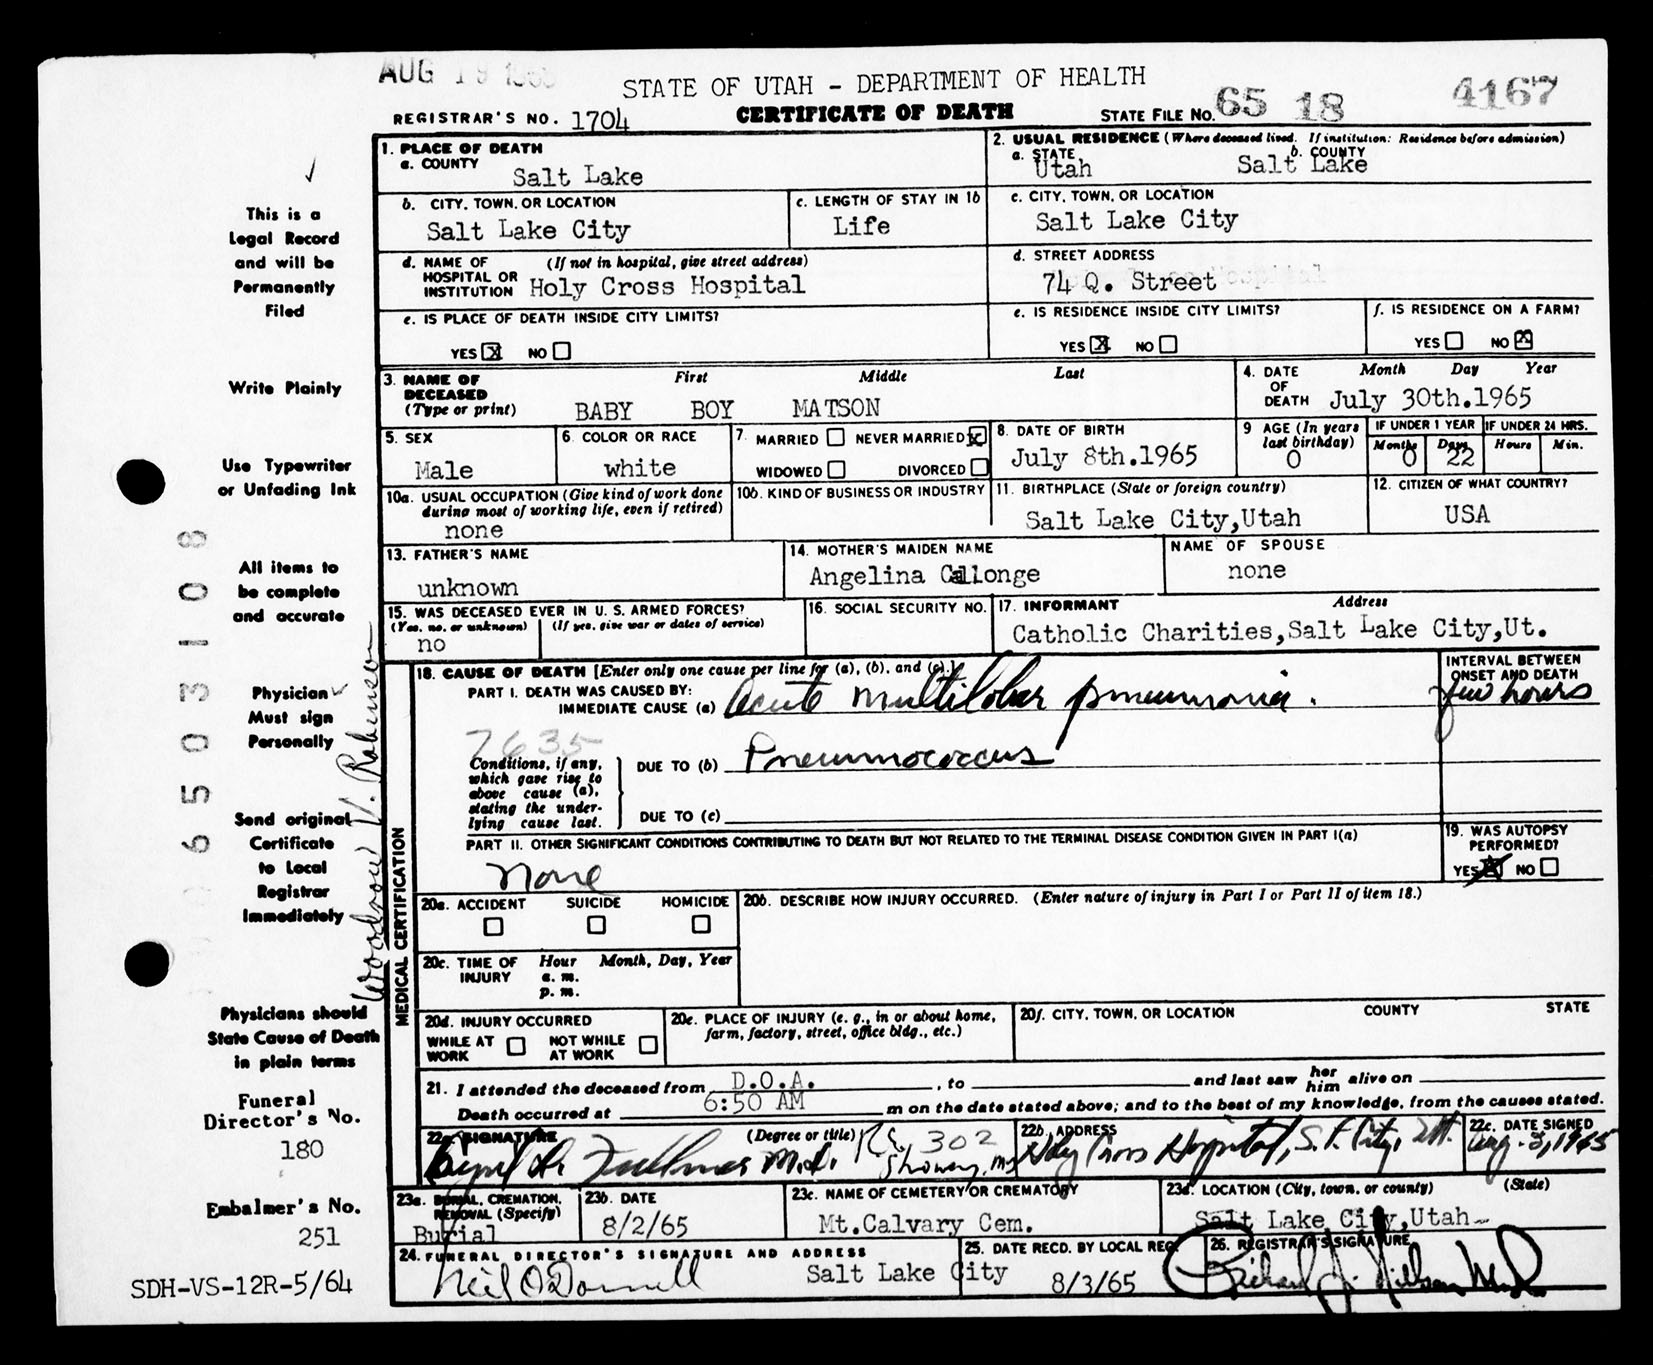 AUG 19 1965
STATE OF UTAH - DEPARTMENT OF HEALTH
4167
REGISTRAR'S NO. 1704
CERTIFICATE OF DEATH
STATE FILE NO. 65 18
1. PLACE OF DEATH
a. COUNTY
Salt Lake
2. USUAL RESIDENCE (Where deceased lived. If institution: Residence before admission)
a. STATE
Utah
b. COUNTY
Salt Lake
b. CITY, TOWN, OR LOCATION
Salt Lake City
c. LENGTH OF STAY IN 1b
Life
c. CITY, TOWN, OR LOCATION
Salt Lake City
d. NAME OF HOSPITAL OR INSTITUTION
(If not in hospital, give street address)
Holy Cross Hospital
d. STREET ADDRESS
74 Q. Street
e. IS PLACE OF DEATH INSIDE CITY LIMITS?
YES X NO
e. IS RESIDENCE INSIDE CITY LIMITS?
YES X NO
f. IS RESIDENCE ON A FARM?
YES NO X
3. NAME OF DECEASED
(Type or print)
First Middle Last
BABY BOY MATSON
4. DATE OF DEATH
Month Day Year
July 30th.1965
5. SEX
Male
6. COLOR OR RACE
white
7. MARRIED NEVER MARRIED X
WIDOWED DIVORCED
8. DATE OF BIRTH
July 8th.1965
9 AGE (In years last birthday)
0
IF UNDER 1 YEAR
Months Days
0 22
IF UNDER 24 HRS.
Hours Min.
10a. USUAL OCCUPATION (Give kind of work done during most of working life, even if retired)
none
10b. KIND OF BUSINESS OR INDUSTRY
11. BIRTHPLACE (State or foreign country)
Salt Lake City,Utah
12. CITIZEN OF WHAT COUNTRY?
USA
13. FATHER'S NAME
unknown
14. MOTHER'S MAIDEN NAME
Angelina Callonge
NAME OF SPOUSE
none
15. WAS DECEASED EVER IN U. S. ARMED FORCES?
(Yes, no, or unknown) (If yes, give war or dates of service)
no
16. SOCIAL SECURITY NO.
17. INFORMANT Address
Catholic Charities,Salt Lake City,Ut.
MEDICAL CERTIFICATION
18. CAUSE OF DEATH [Enter only one cause per line for (a), (b), and (c).]
PART I. DEATH WAS CAUSED BY:
IMMEDIATE CAUSE (a) Acute multilobar pneumonia.
INTERVAL BETWEEN ONSET AND DEATH
few hours
7635
Conditions, if any,
which gave rise to
above cause (a),
stating the under-
lying cause last.
DUE TO (b) Pneumococcus
DUE TO (c)
PART II. OTHER SIGNIFICANT CONDITIONS CONTRIBUTING TO DEATH BUT NOT RELATED TO THE TERMINAL DISEASE CONDITION GIVEN IN PART I(a)
None
19. WAS AUTOPSY PERFORMED?
YES X NO
20a. ACCIDENT SUICIDE HOMICIDE
20b. DESCRIBE HOW INJURY OCCURRED. (Enter nature of injury in Part I or Part II of item 18.)
20c. TIME OF INJURY
Hour Month, Day, Year
a. m.
p. m.
20d. INJURY OCCURRED
WHILE AT WORK NOT WHILE AT WORK
20e. PLACE OF INJURY (e. g., in or about home, farm, factory, street, office bldg., etc.)
20f. CITY, TOWN, OR LOCATION COUNTY STATE
21. I attended the deceased from D.O.A., to and last saw her him alive on
Death occurred at 6:50 AM m on the date stated above; and to the best of my knowledge, from the causes stated.
22a. SIGNATURE (Degree or title)
M.D.
302
22b. ADDRESS
Holy Cross Hospital, S. L. City, Ut.
22c. DATE SIGNED
Aug. 3, 1965
23a. BURIAL, CREMATION, REMOVAL (Specify)
Burial
23b. DATE
8/2/65
23c. NAME OF CEMETERY OR CREMATORY
Mt.Calvary Cem.
23d. LOCATION (City, town, or county) (State)
Salt Lake City,Utah
24. FUNERAL DIRECTOR'S SIGNATURE AND ADDRESS
Neil O'Donnell Salt Lake City
25. DATE RECD. BY LOCAL REG.
8/3/65
26. REGISTRAR'S SIGNATURE
This is a
Legal Record
and will be
Permanently
Filed
Write Plainly
Use Typewriter
or Unfading Ink
All items to
be complete
and accurate
Physician
Must sign
Personally
Send original
Certificate
to Local
Registrar
Immediately
Physicians should
State Cause of Death
in plain terms
Funeral
Director's No.
180
Embalmer's No.
251
SDH-VS-12R-5/64
65 03108
Woodrow V. Robinson